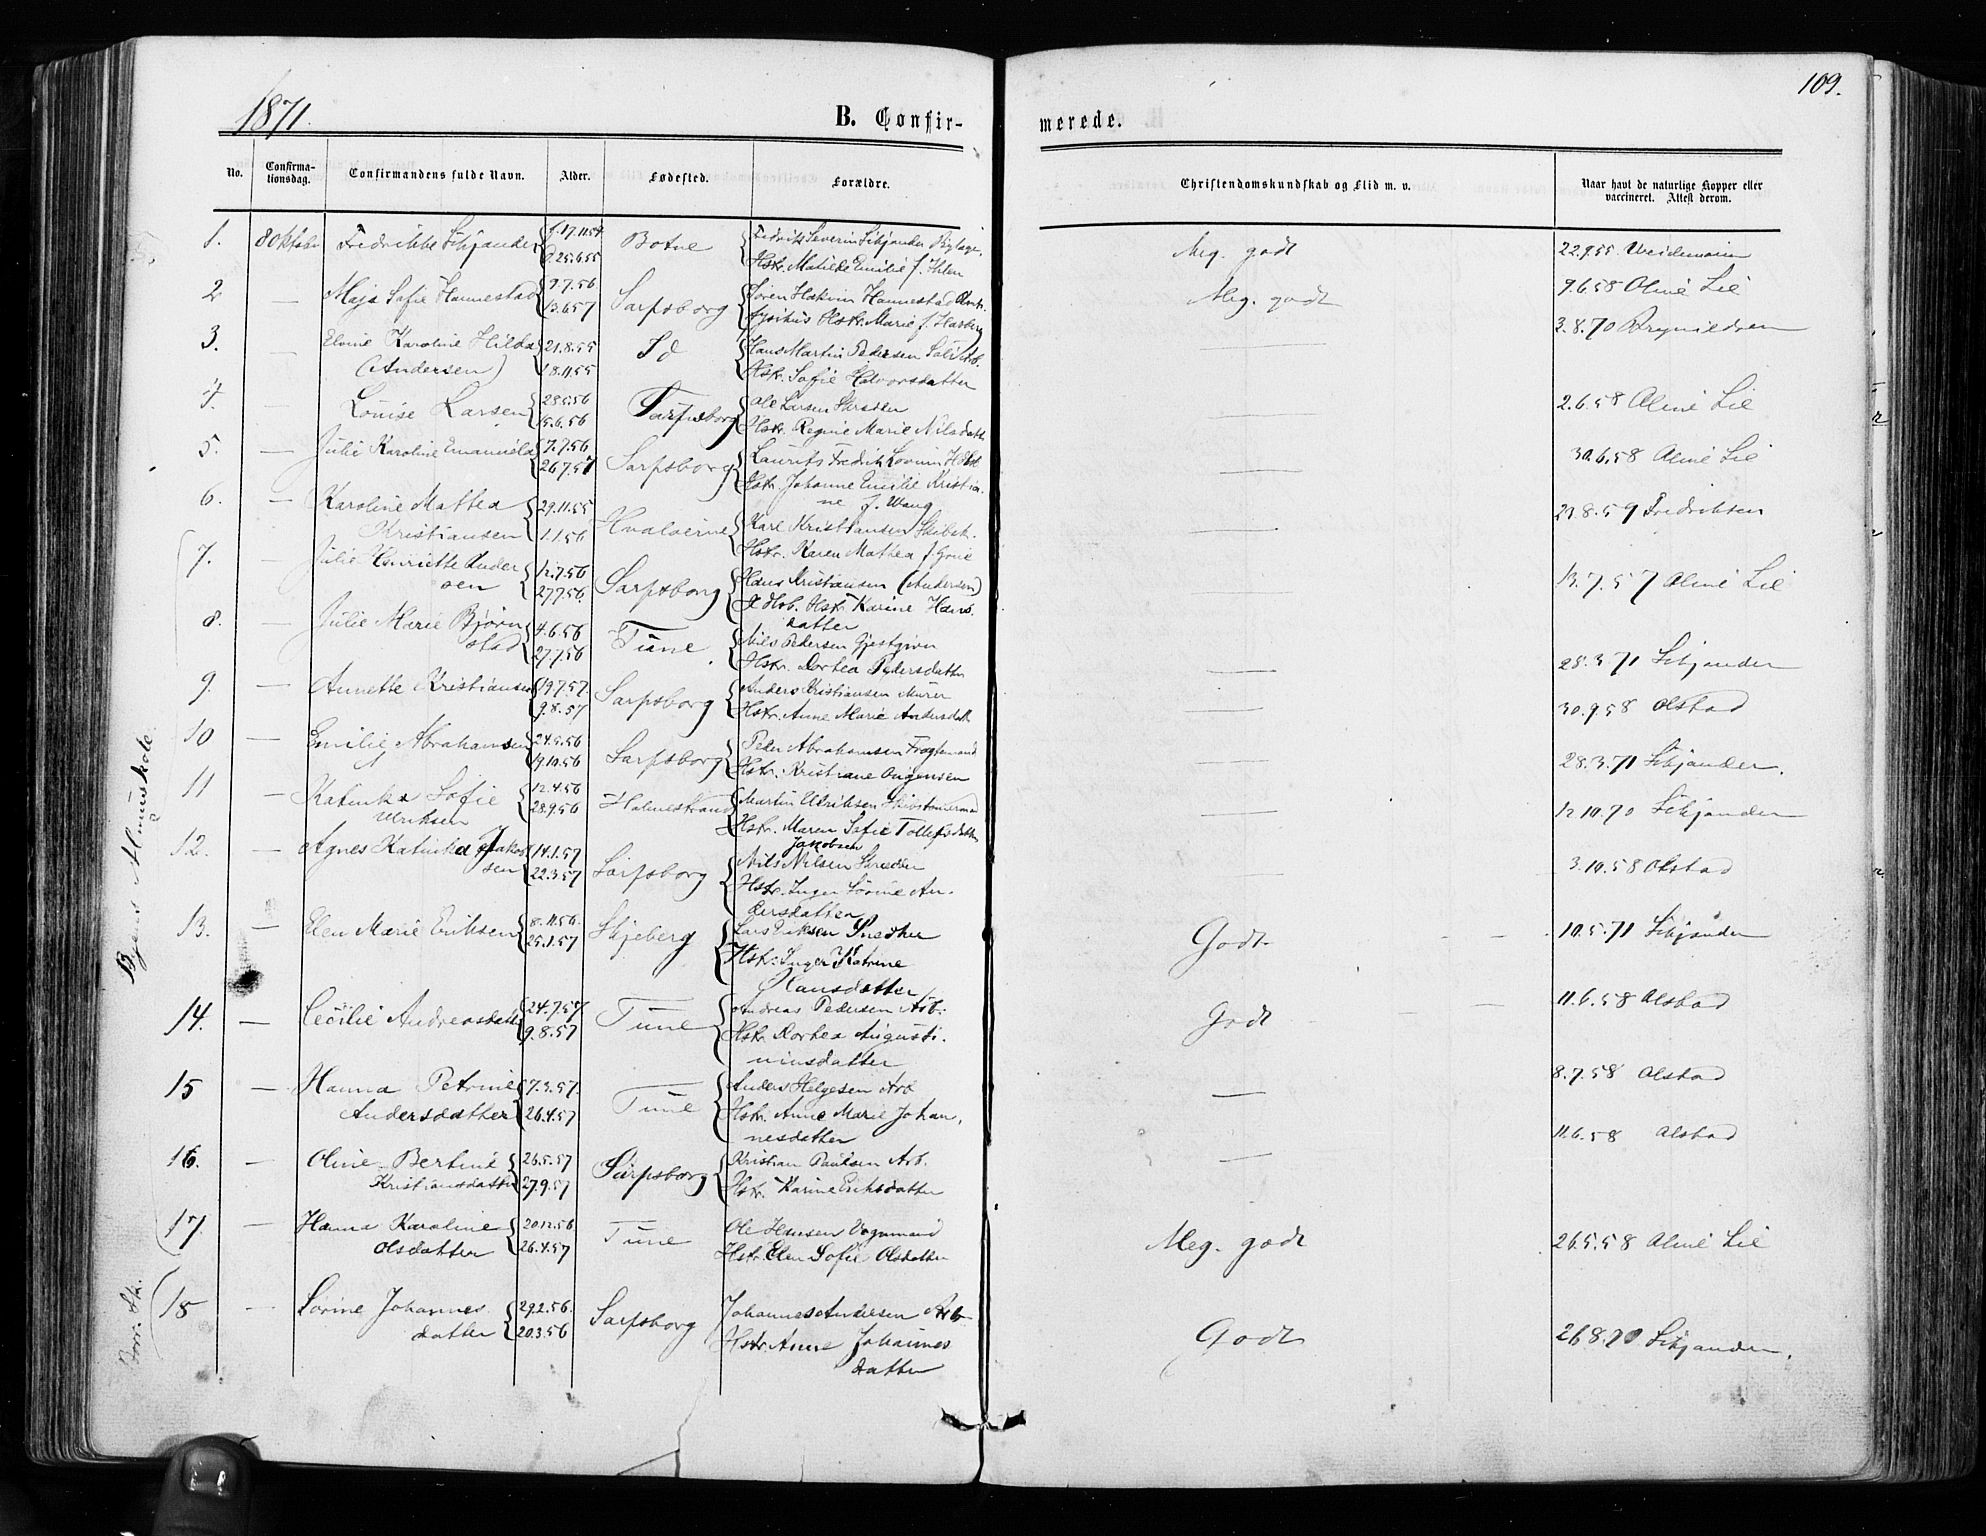 1871.
B. Confir-
merede.
109.
No.
Confirma-
tionsdag.
Confirmandens fulde Navn.
Alder.
Fødested.
Forældre.
Christendomskundskab og Flid m. v.
Naar havt de naturlige Kopper eller
vaccineret. Attest derom.
1. 8 Oktober Fredrikke Sihjander 17.11.54 Botne Fredrik Severin Sihjander
25.6.55 Hstr. Matilde Emilie f. Ihlen
Meg. godt
22.9.55
2 — Maja Sofie Hannestad 9.7.56 Sarpsborg Søren Hannestad
13.6.57 Hstr. Marie f.
Meg. godt
9.6.58 Aline Lie
3. — Karoline Hilda 21.8.55 Id Hans Martin Pedersen
(Andersen) 18.11.55 Hstr. Sofie Halvorsdatter
—
3.8.70 Brynildsen
4. — Louise Larsen 28.5.56 Sarpsborg Ole Larsen Skrædder
15.6.56 Hstr. Regine Marie Nilsdattr
—
2.6.58 Aline Lie
5. — Julie Karoline Emanuelda 7.7.56 Sarpsborg Laurits Fredrik
26.7.57 Hstr. Johanne Emilie Kristia-
ne f. Wang
—
30.6.58 Aline Lie
6. — Karoline Mattea 29.11.55 Hvaløerne Karl Kristiansen Skibsk.
Kristiansen 1.1.56 Hstr. Karen Mathea f.
—
23.8.59 Fredriksen
7. Julie Henriette Ander 12.7.56 Sarpsborg Hans Kristiansen (Andersen)
sen 27.7.56. Hstr. Karine Hans
datter
—
13.7.57 Aline Lie
8. — Julie Marie Bjørn 4.6.56 Tune Nils Pedersen Gjestgiver
stad 27.7.56 Hstr. Dorthea Pedersdatter
—
28.3.71 Sihjander
9. — Annette Kristiansen 19.7.57. Sarpsborg Anders Kristiansen Murer
9.8.57 Hstr. Anne Marie Andersdatt
—
30.9.58 Olstad
10 — Emilie Abrahamsen 24.5.56 Sarpsborg Peder Abrahamsen
19.10.56 Hstr. Kristiane
—
28.3.71 Sihjander.
11 — Katinka Sofie 12.4.56 Holmestrand Martin Ulriksen Skibstømmermand
Ulriksen 28.9.56 Hstr. Maren Sofie Tollefsdatter
—
12.10.70 Sihjander
12. — Agnes Katinka Jakob 14.1.57 Sarpsborg Jakobsen
sen 22.3.57 Nils Nilsen Skrædder
Hstr. Inger Sørine An-
dersdatter
—
3.10.58 Olstad
13. — Elen Marie Eriksen 8.11.56. Skjeberg Lars Eriksen Snedker
25.1.57 Hstr. Inger Katrine
Hansdatter
Godt
10.5.71 Sihjander
14. — Cecilie Andreasdatter 24.7.57 Tune Andreas Pedersen Arb.
9.8.57 Hstr. Dortea Augusti-
niusdatter
Godt
11.6.58 Olstad
15 — Hanna Petrine 7.3.57. Tune Anders Helgesen Arb
Andersdatter 26.4.57 Hstr. Anne Marie Johan-
nesdatter
—
8.7.58 Olstad
16. — Oline Bertine 26.5.57 Sarpsborg Kristian Paulsen Arb.
Kristiansdatter 27.9.57 Hstr. Karine Eriksdatter
—
11.6.58 Olstad
17. — Hanna Karoline 20.12.56 Tune Ole Hansen Vognmand
Olsdatter 26.4.57 Hstr. Elen Sofie Olsdatter
Meg. godt
26.5.58 Aline Lie
18 — Sørine Johannes 29.2.56. Sarpsborg Johannes Andersen Arb
datter 20.3.56 Hstr. Anne Johannes
datter
Godt
26.8.70 Sihjander.
Byens Almuskole.
Borr: Sk.